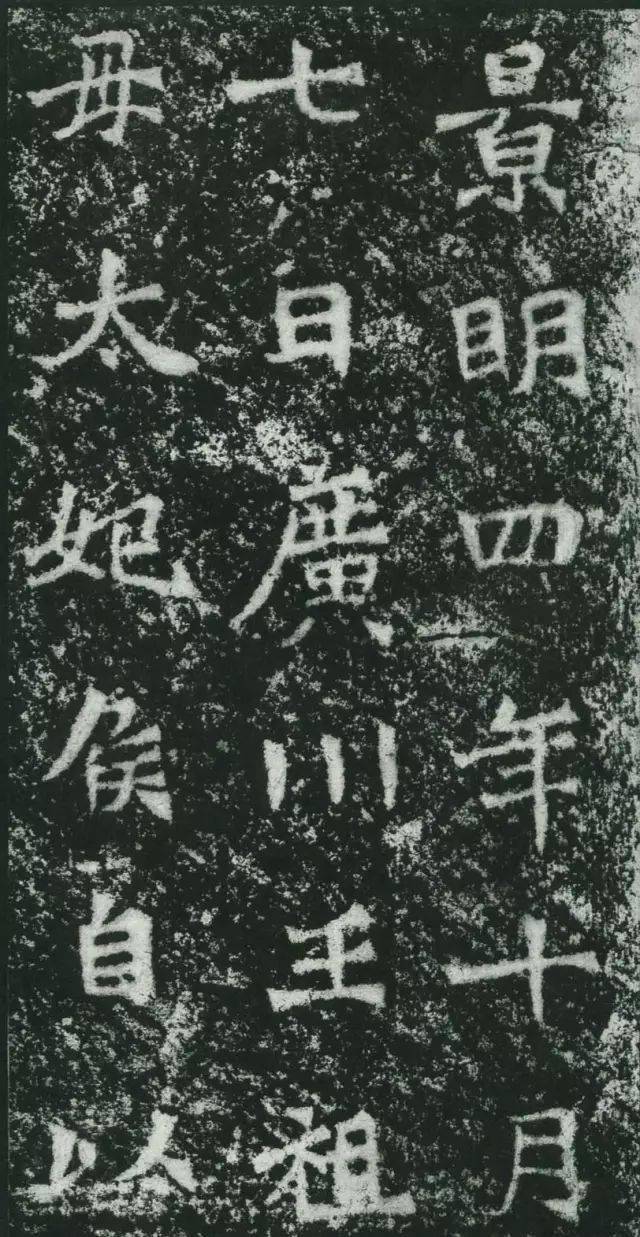 景明四年十月
七日廣川王祖
母太妃侯自以